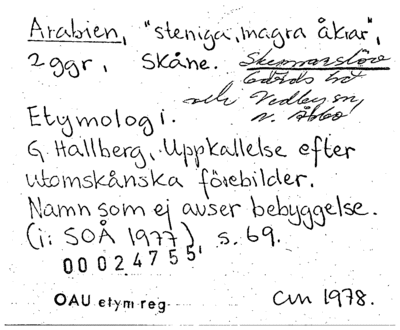 Arabien, "steniga, magra åkrar",
2 ggr, Skåne.
och Vedby sn,
N. Åsbo
Etymologi.
G. Hallberg, Uppkallelse efter
utomskånska förebilder.
Namn som ej avser bebyggelse.
(i: SOÅ 1977), s. 69.
00024755
OAU etym reg
CM 1978.